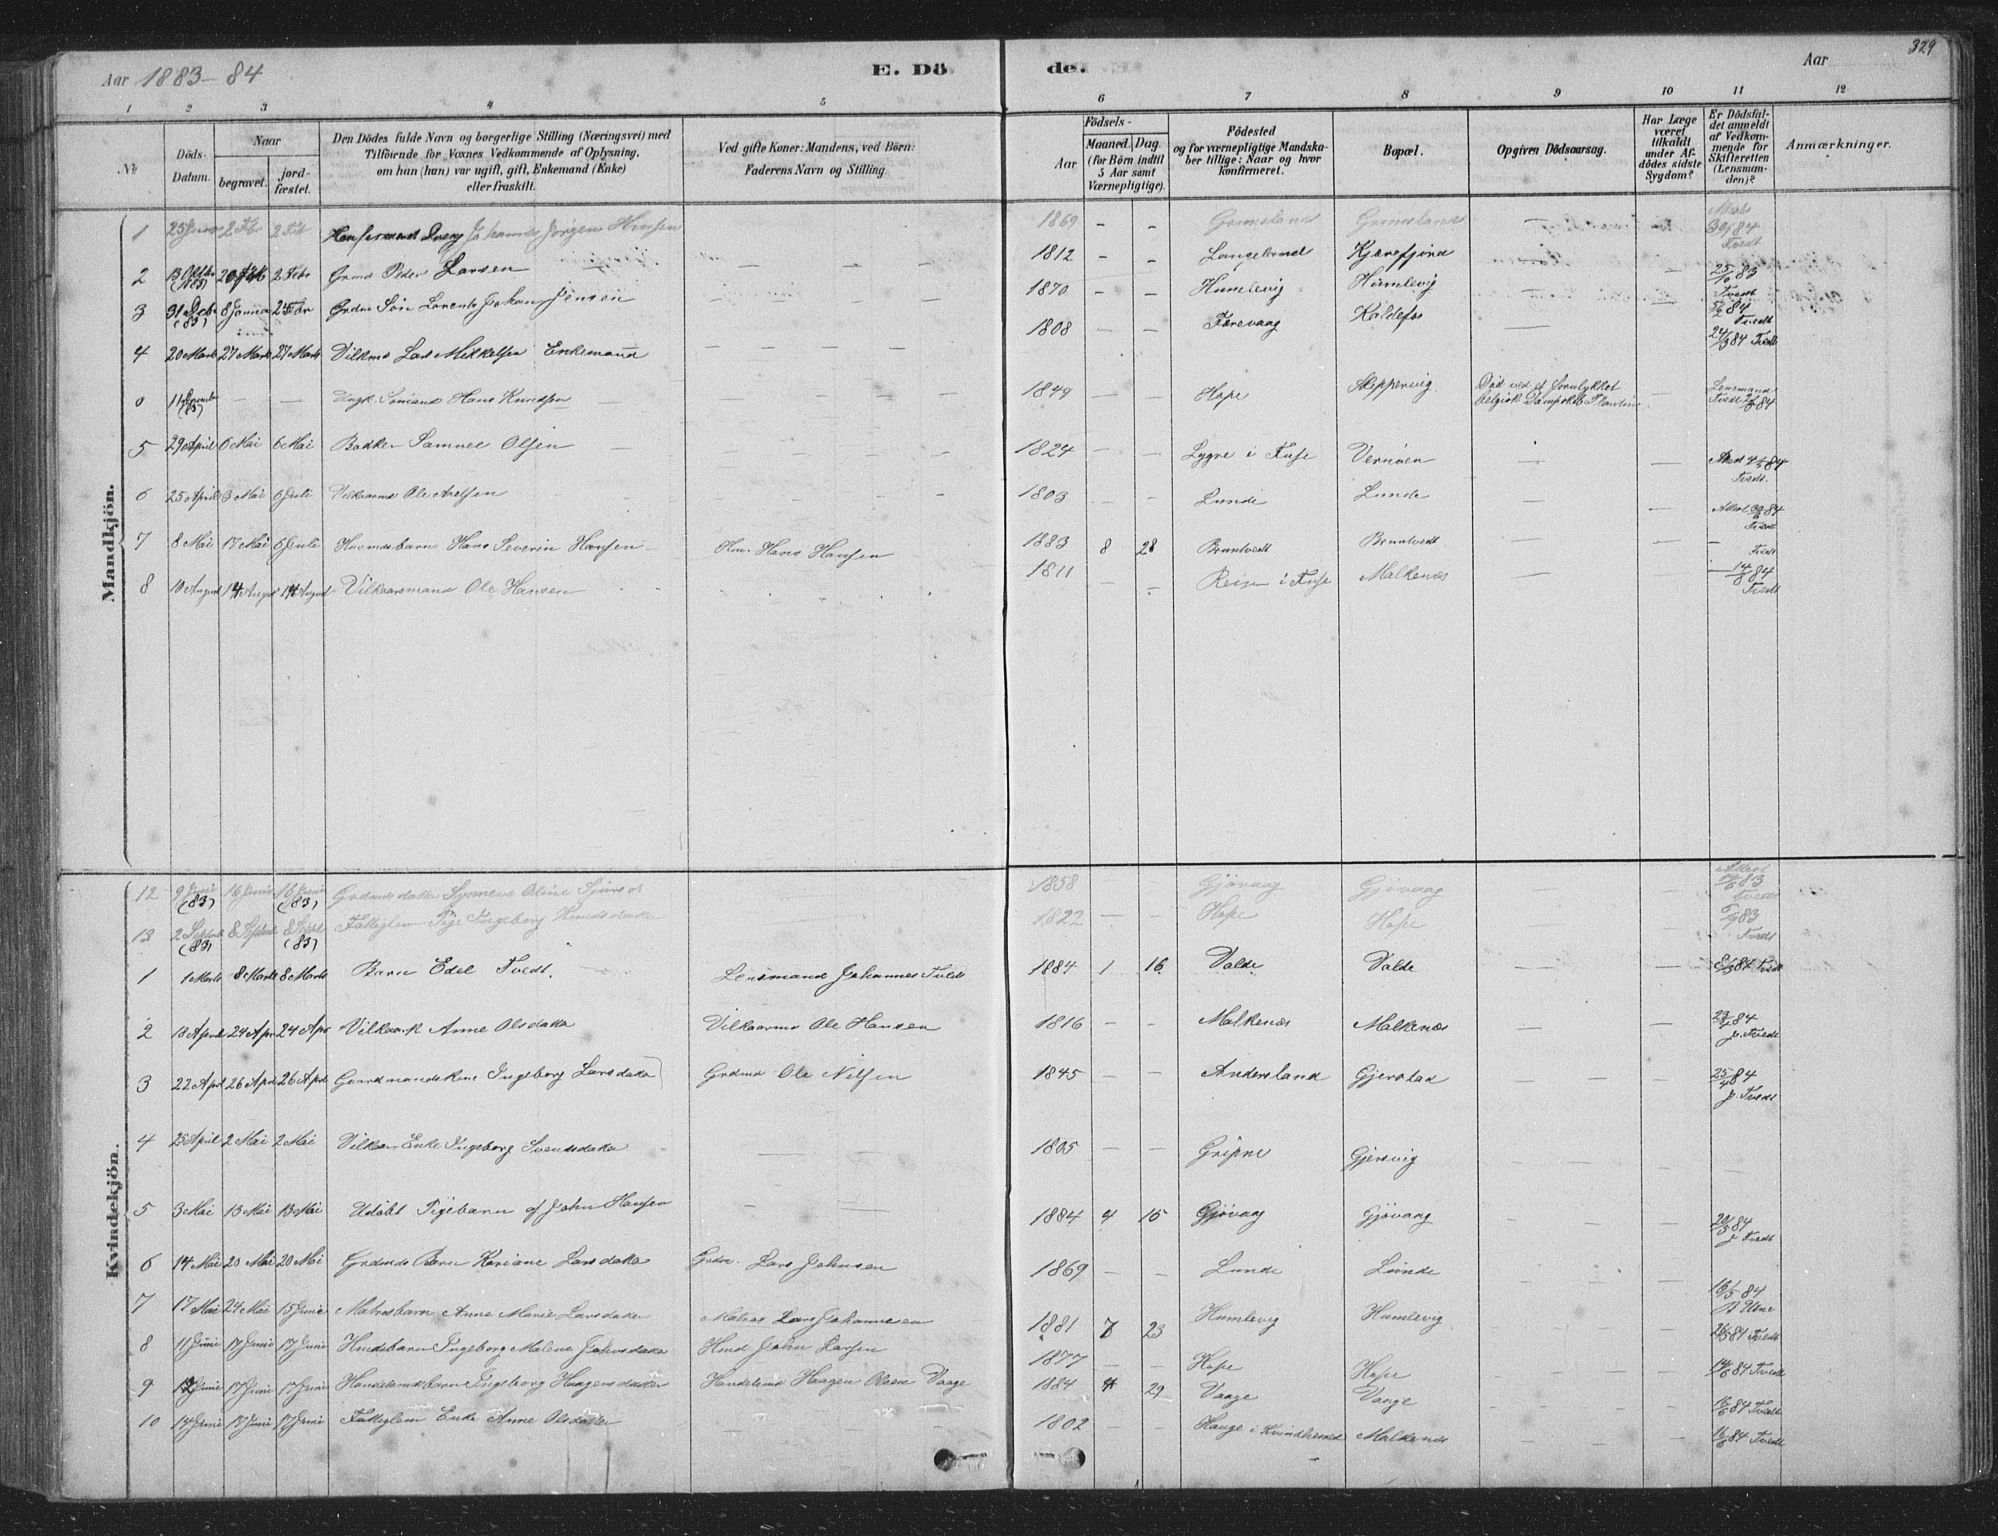 Aar 1883-84 E. Dö de. Aar 329
1 2 3 4 5 6 7 8 9 10 11 12
No
Döds-Datum.
Naar
begravet.
jord-fæstet.
Den Dödes fulde Navn og borgerlige Stilling (Næringsvei) med
Tilföiende for Voxnes Vedkommende af Oplysning,
om han (hun) var ugift, gift, Enkemand (Enke)
eller fraskilt.
Ved gifte Koner: Mandens, ved Börn:
Faderens Navn og Stilling.
Födsels-
Aar
Maaned. Dag.
(for Börn indtil
5 Aar samt
Værnepligtige).
Födested
og for værnepligtige Mandska-
ber tillige: Naar og hvor
konfirmeret.
Bopæl.
Opgiven Dödsaarsag.
Har Læge
været
tilkaldt
under Af-
dödes sidste
Sygdom?
Er Dödsfal-
det anmeldt
af Vedkom-
mende for
Skifteretten
(Lensman-
den)?
Anmærkninger.
Mandkjön.
1 2 Febr 2 Feb Johannes Jörgen 1869 - - 84 Tvedt
2 13 Octbr (1883) 2 Febr Grmd Peder Larsen 1812 - - Langeland Kjærefjord 25/10 83 Tvedt
3 31 Decbr (83) 8 Janua 2 Febr Grdm Søn Lorents Johan Jensen 1870 - - Humlevig Humlevig 84 Tvedt
4 20 Marts 27 Marts 27 Marts Vilkmd Lars Mikkelsen Enkemand 1808 Færevaag Koldefos 24/3 84 Tvedt
0 11 (83) - - Ungk. Sømand Hans Knudsen 1849 - - Hope Skippervig Død ved et
belgisk Dampskib Lensmand Tvedt 84
5 29 April 6 Mai 6 Mai Samuel Olsen 1824 - - Lygre i Fuse Vernøen 84 Tvedt.
6 25 April 3 Mai 6 Juli Ole Axelsen 1803 - - Lunde Lunde 84 Tvedt
7 8 Mai 17 Mai 6 Juli Husmdsbarn Hans Severin Hansen Hm. Hans Hansen 1883 8 28 Bruntvedt Bruntvedt Tvedt
8 10 August 14 August 14 August Vilkaarsmand Ole Hansen 1811 - - i Fuse Malkenæs 14/8 84 Tvedt
Kvindekjön.
12 9 Juni (83) 16 Juni 16 Juni (83) Oline 1858 Gjøvaag Gjøvaag 83 Tvedt
13 2 Septbr (83) 8 Septbr 8 Septbr (83) Fattiglem Pige Ingeborg Knudsdatter 1822 - Hope Hope 83 Tvedt
1 1 Marts 8 Marts 8 Marts Barn Edel Tvedt. Lensmand Johannes Tvedt 1884 1 16 Valde Valde 8/3 84 Tvedt
2 18 April 24 Apr 24 Apr Anne Olsdatter Vilkaarmd Ole Hansen 1816 - - Malkenæs Malkenæs 84 J. Tvedt
3 22 Apl 26 Apl 26 Apl Gaardmandskone Ingeborg Larsdatter Grdmd Ole Nilsen 1845 - - Andersland Gjerstad 25/4 84 J. Tvedt
4 25 April 2 Mai 2 Mai Vilkaar Enke Ingeborg Svendsdatter 1805 - - Gripne Gjersvig
5 3 Mai 13 Mai 13 Mai Udøbt Pigebarn af John Hansen 1884 4 15 Gjøvaag Gjøvaag 84 J Tvedt
6 14 Mai 20 Mai 20 Mai Grdmds Barn Kariane Larsdatter Grdm. Lars Johnsen 1869 - - Lunde Lunde 16/5 84
7 17 Mai 24 Mai 15 Juni Matrosbarn Anne Marie Larsdatter Matros Lars Johannesen 1881 7 23 Humlevig Humlevig 84 Tvedt
8 11 Juni 17 Juni 17 Juni Husmdsbarn Ingeborg Malene Johnsdatter Husmd John Larsen 1877 - - Hope Hope 14/6 84 Tvedt
9 12 Juni 17 Juni 17 Juni Handelsmdsbarn Ingeborg Haagensdatter Handelsmd Haagen Olsen Vaage 1884 4 29 Vaage Vaage 16/6 84 Tvedt
10 14 Juni 17 Juni 17 Juni Fattiglem Enke Anne Olsdatter 1802 - - Hauge i Kvindherred Malkenæs 16/6 84 Tvedt